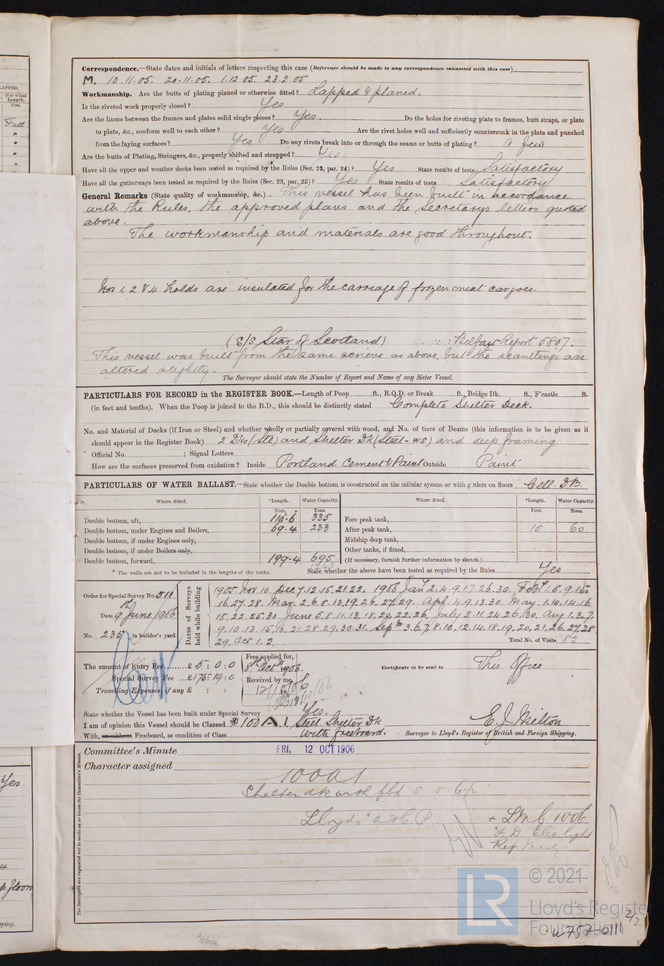 Correspondence.—State dates and initials of letters respecting this case (Reference should be made to any correspondence connected with this case)
M. 10.11.05. 20.11.05. 1.12.05 23.2.05
Workmanship. Are the butts of plating planed or otherwise fitted? Lapped & planed.
Is the riveted work properly closed? Yes.
Are the liners between the frames and plates solid single pieces? Yes. Do the holes for riveting plate to frames, butt straps, or plate
to plate, &c., conform well to each other? Yes Are the rivet holes well and sufficiently countersunk in the plate and punched
from the faying surfaces? Yes Do any rivets break into or through the seams or butts of plating? a few
Are the butts of Plating, Stringers, &c., properly shifted and strapped? Yes.
Have all the upper and weather decks been tested as required by the Rules (Sec. 23, par. 24)? Yes State results of tests Satisfactory
Have all the gutterways been tested as required by the Rules (Sec. 23, par. 25)? Yes State results of tests Satisfactory
General Remarks (State quality of workmanship, &c.) This vessel has been built in accordance
with the Rules, the approved plans and the Secretarys letters quoted
above.
The workmanship and materials are good throughout.
Nos 1, 2 & 4 holds are insulated for the carriage of frozen meat cargoes.
(S/S Star of Scotland) Belfast Report 5807.
This vessel was built from the same scrieve as above, but the scantlings are
altered slightly.
The Surveyor should state the Number of Report and Name of any Sister Vessel.
PARTICULARS FOR RECORD in the REGISTER BOOK.—Length of Poop ft., R.Q.D. or Break ft., Bridge Dk. ft., F'castle ft.
(in feet and tenths). When the Poop is joined to the B.D., this should be distinctly stated Complete Shelter Deck.
No. and Material of Decks (if Iron or Steel) and whether wholly or partially covered with wood, and No. of tiers of Beams (this information is to be given as it
should appear in the Register Book) 2 Dks (Stl) and Shelter Dk (Steel-ws) and deep framing
Official No. ; Signal Letters
How are the surfaces preserved from oxidation? Inside Portland Cement & Paint Outside Paint
PARTICULARS OF WATER BALLAST.—State whether the Double bottom is constructed on the cellular system or with girders on floors Cell. D.B.
Where fitted. *Length. Water Capacity. Where fitted. *Length. Water Capacity.
Feet. Tons. Feet. Tons.
Double bottom, aft, 335 Fore peak tank,
Double bottom, under Engines and Boilers, 69.4 233 After peak tank, 60
Double bottom, if under Engines only, Midship deep tank,
Double bottom, if under Boilers only, Other tanks, if fitted,
Double bottom, forward, 199.4 695 (If necessary, furnish further information by sketch.)
* The wells are not to be included in the lengths of the tanks. State whether the above have been tested as required by the Rules Yes
Order for Special Survey No. 511
Date 9th June 1906
No. 235 in builder's yard.
DATES of Surveys held while building
1905 Nov 10. Dec 7.12.15.21.22. 1906 Jan 2.4.9.17.26.30. Feb 1.5.9.15.
16.27.28. Mar 2.6.8.13.19.26.27.29. Apl 4.9.13.30. May 1.10.14.16
15.22.25.30 June 5.8.11.13.18.29.22.26. July 2.11.24.26.30. Aug 1.3.7.
9.10.13.15.16.21.28.29.30.31 Sep 3.6.7.8.10.12.14.18.19.20.21.26.27.28
29. Oct 1.2. Total No. of Visits
The amount of Entry Fee £5:0:0
Special Survey Fee £175:19:0
Travelling Expenses, if any £ : :
Fees applied for,
8th Oct 1906.
Received by me,
Certificate to be sent to This Office
State whether the Vessel has been built under Special Survey Yes.
I am of opinion this Vessel should be Classed 100A1 Steel Shelter Dk
With, or without Freeboard, as condition of Class With freeboard.
E. J. Milton
Surveyor to Lloyd's Register of British and Foreign Shipping.
Committee's Minute FRI. 12 OCT 1906
Character assigned 100A1
Shelter dk with fbd
Lloyds A&CP
+ LMC 10.06
Elec light
© 2021
Lloyd's Register
Foundation